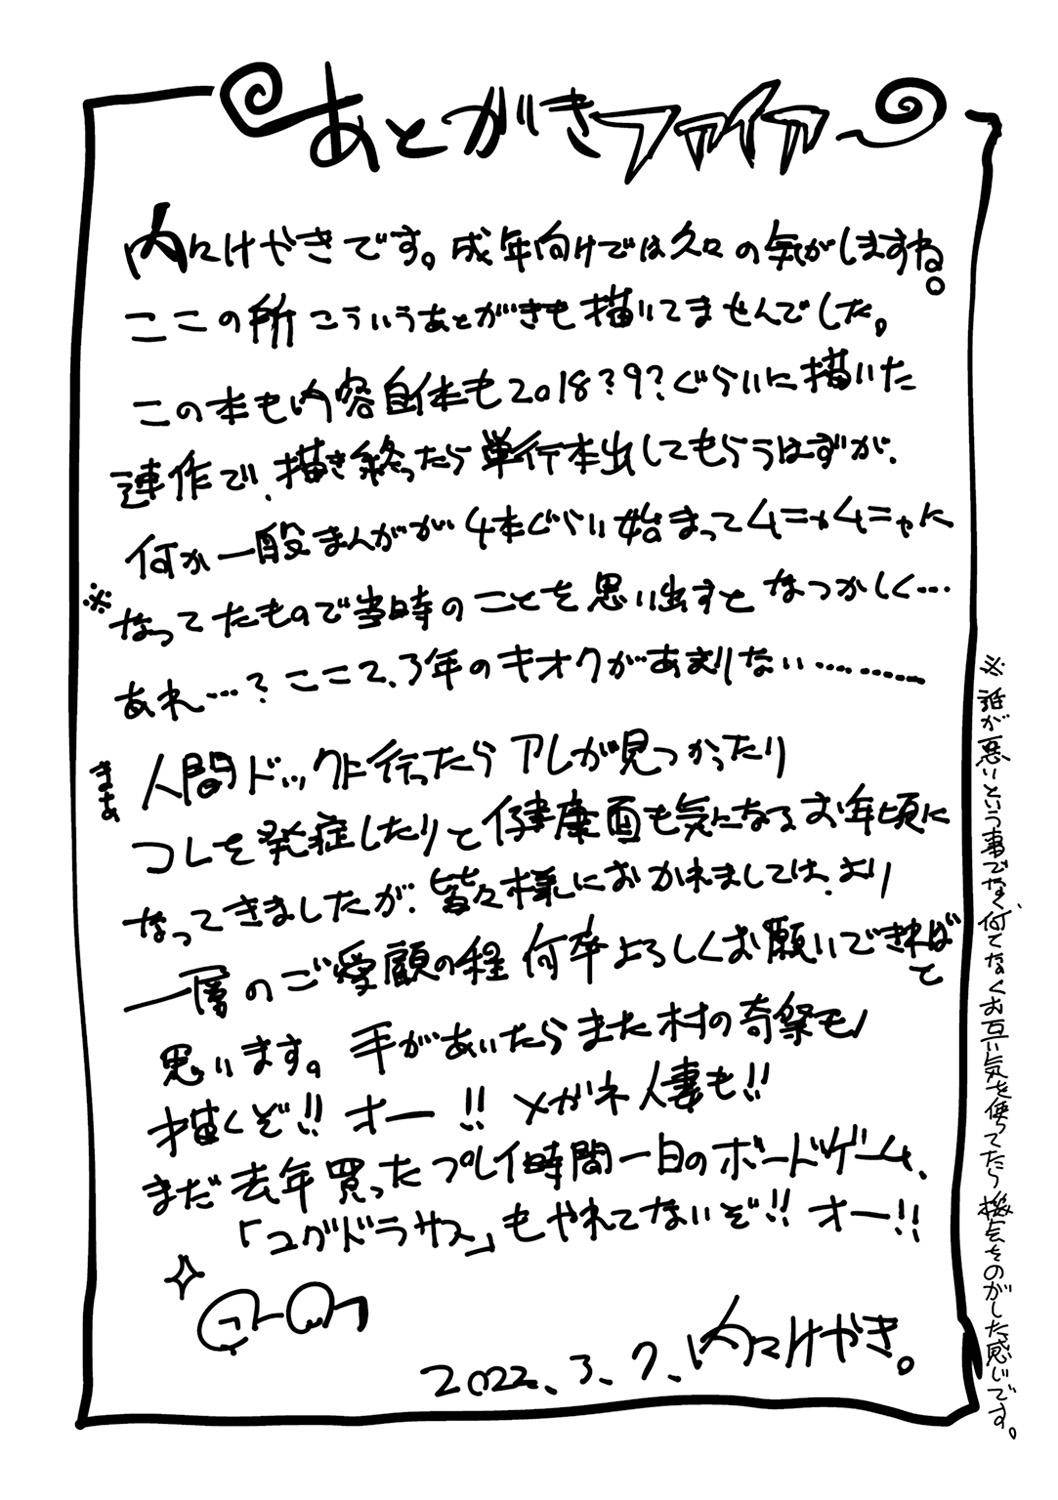 あとがきファイア
内々けやきです。成年向けでは久々の気がしますね。
ここの所こういうあとがきも描いてませんでした。
この本も内容自体も2018?9?ぐらいに描いた
連作で、描き終ったら単行本出してもらうはずが、
何か一般まんがが4本ぐらい始まってムニャムニャに
※なってたもので当時のことを思い出すとなつかしく…
あれ…?ここ2、3年のキオクがあまりない………
まあ人間ドックに行ったらアレが見つかったり
コレを発症したりと健康面も気になるお年頃に
なってきましたが、皆々様におかれましては、より
一層のご愛顧の程何卒よろしくお願いできればと
思います。手があいたらまた村の奇祭モノ
描くぞ!!オー!!メガネ人妻も!!
まだ去年買ったプレイ時間一日のボードゲーム、
「ユグドラサス」もやれてないぞ!!オー!!
2022.3.7.内々けやき。
※誰が悪いという事でなく何てなくお互い気を使ってたら機会をのがした感じです。